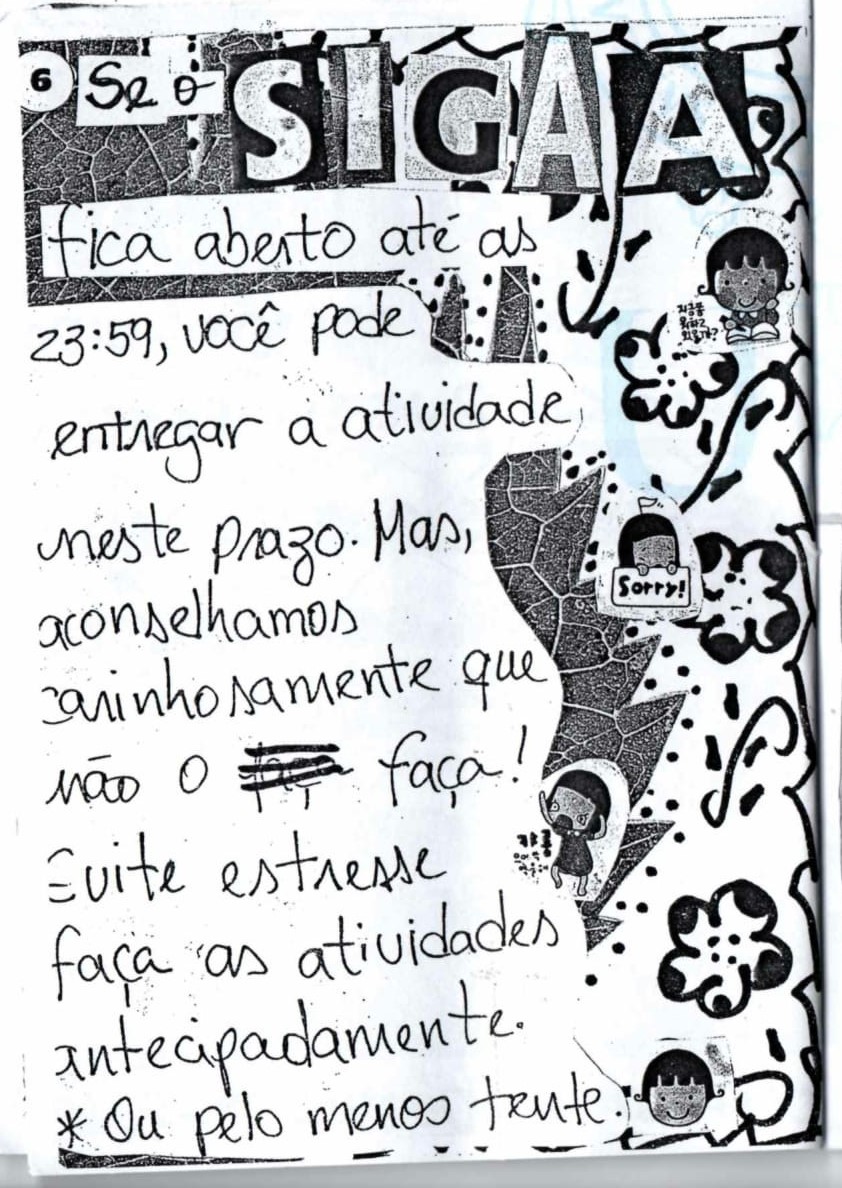 6 Se o SIGAA
fica aberto até as
23:59, você pode
entregar a atividade
neste prazo. Mas,
aconselhamos
carinhosamente que
não o faça!
Evite estresse
faça as atividades
antecipadamente.
* Ou pelo menos tente.
지금쯤
뭐하고
있을까?
Sorry!